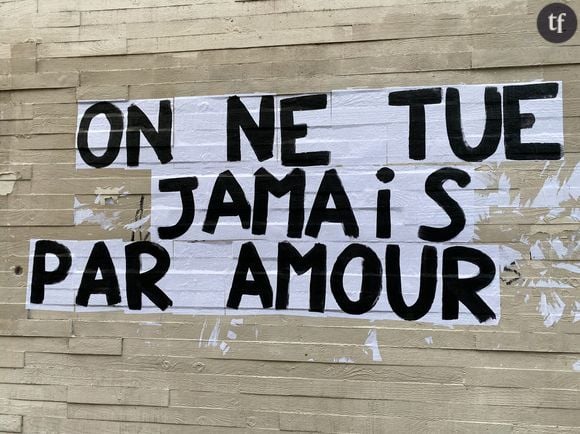 tf
ON NE TUE
JAMAiS
PAR AMOUR